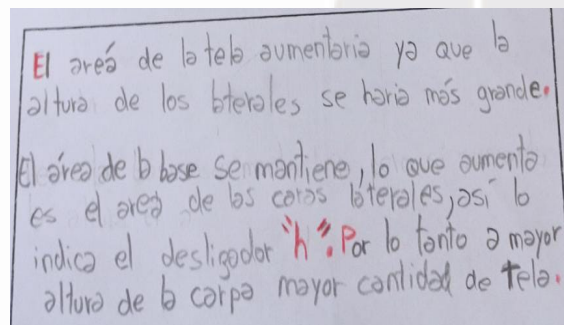 El areá de la tela aumentaria ya que la
altura de los laterales se haria más grande.
El área de la base se mantiene, lo que aumenta
es el area de las caras laterales, así lo
indica el desligador "h". Por lo tanto a mayor
altura de la carpa mayor cantidad de tela.